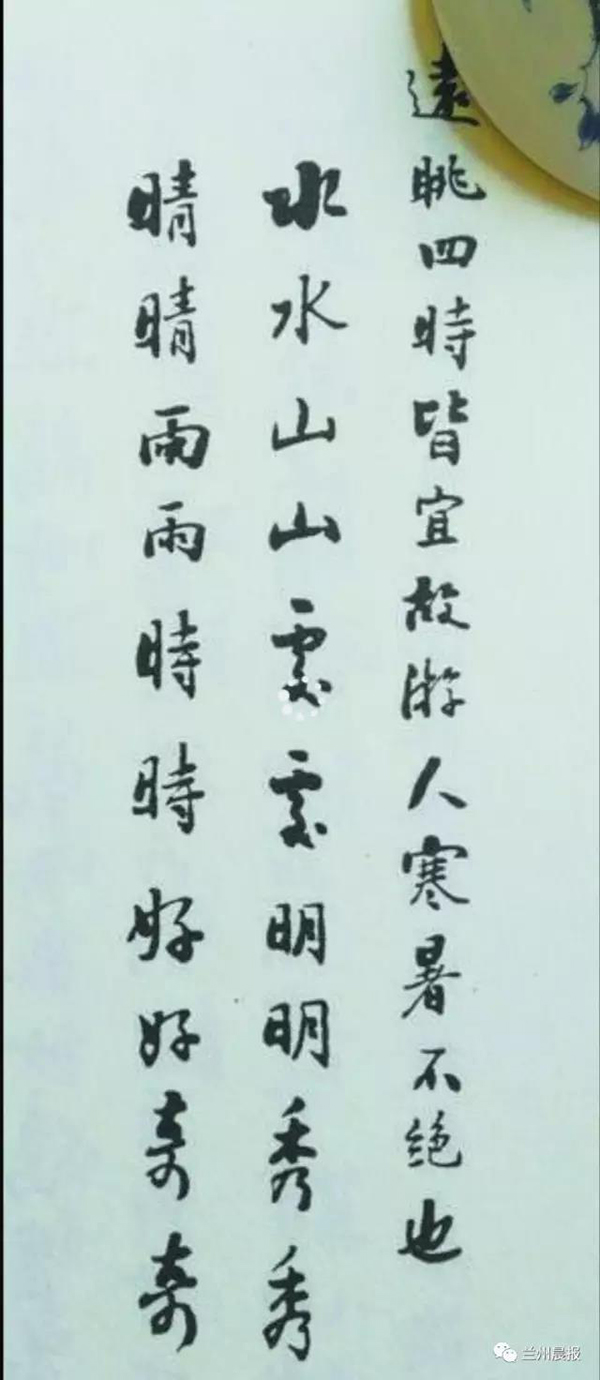 遠眺四時皆宜故游人寒暑不絶也
水水山山處處明明秀秀
晴晴雨雨時時好好奇奇
兰州晨报